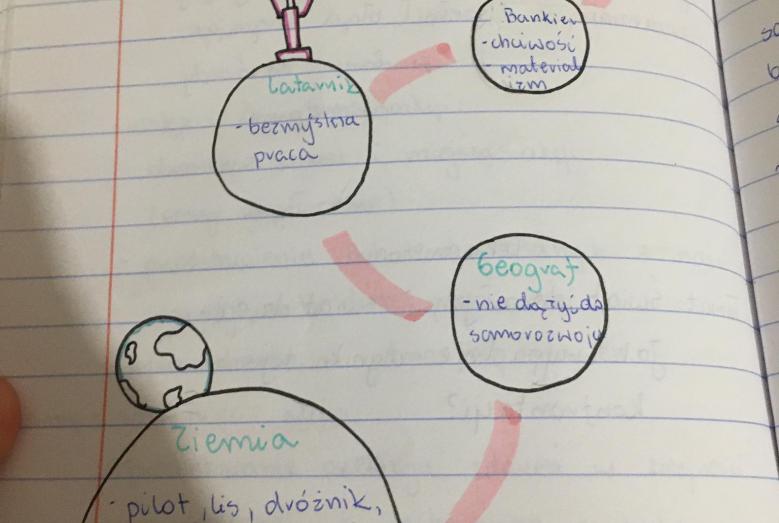 Bankier
- chciwość
- material
izm
Latarnik
- bezmyślna
praca
Geograf
- nie dąży do
samorozwoju
Ziemia
- pilot, lis, dróżnik,